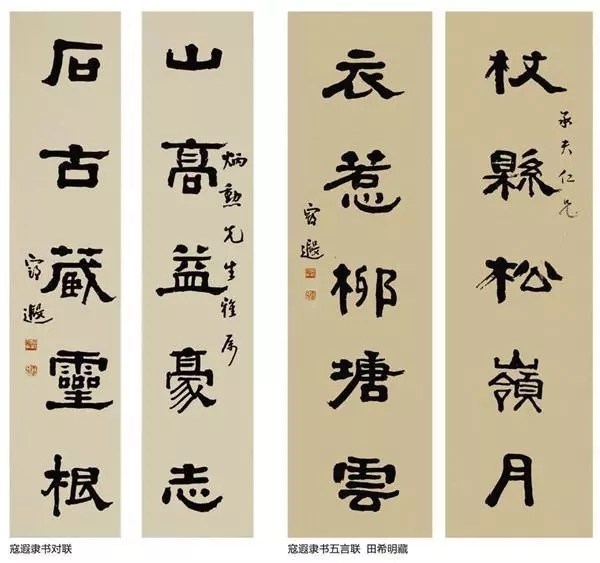 山髙益豪志
炳勳先生雅属
石古藏靈根
寇遐
寇遐隶书对联
杖縣松嶺月
承夫仁兄
衣惹柳塘雲
寇遐
寇遐隶书五言联 田希明藏